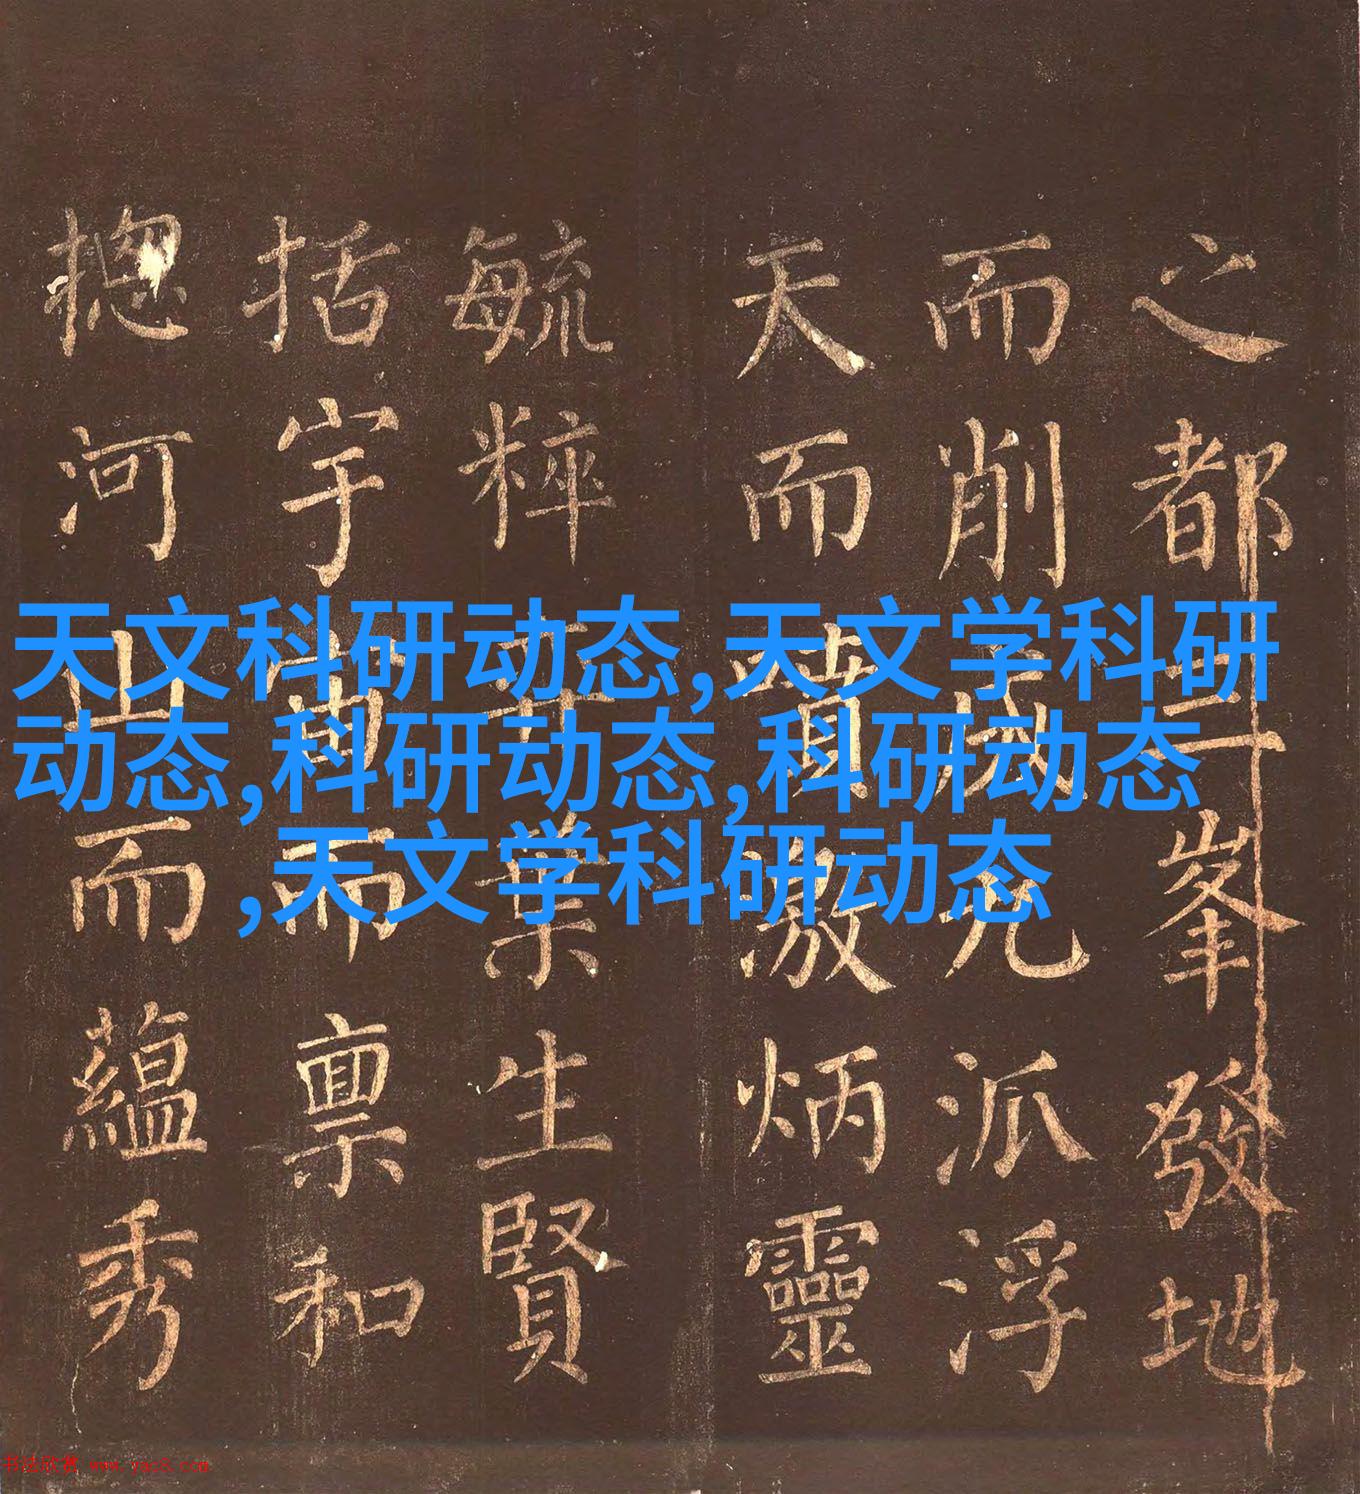 之都三峯發地
而削成九派浮
天而噴激炳靈
毓粹葉生賢
括宇宙而稟和
揔河山而蘊秀
天文科研动态,天文学科研
动态,科研动态,科研动态
,天文学科研动态
书法欣赏 www.yac8.com